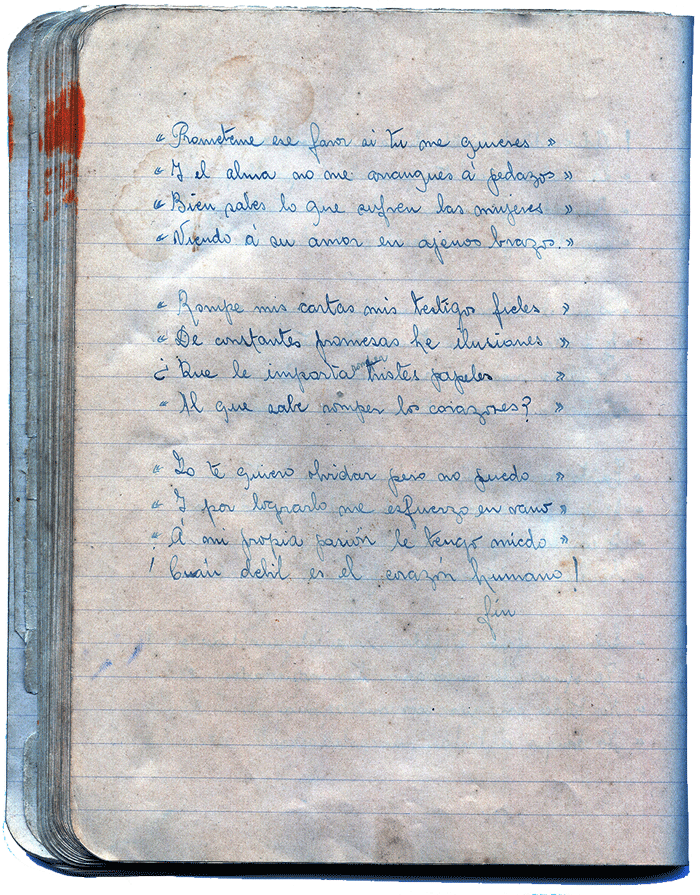 « Prometeme ese favor si tu me quieres »
« Y el alma no me arranques á pedazos »
« Bien sabes lo que sufren las mujeres »
« Viendo á su amor en ajenos brazos. »
« Rompe mis cartas mis testigos fieles »
« De constantes promesas he ilusiones »
¿ Que le importa romper tristes papeles »
« Al que sabe romper los corazones? »
« Yo te quiero olvidar pero no puedo »
« Y por lograrlo me esfuerzo en vano »
« Á mi propia pasión le tengo miedo »
! Cuán debil es el corazón humano !
fin